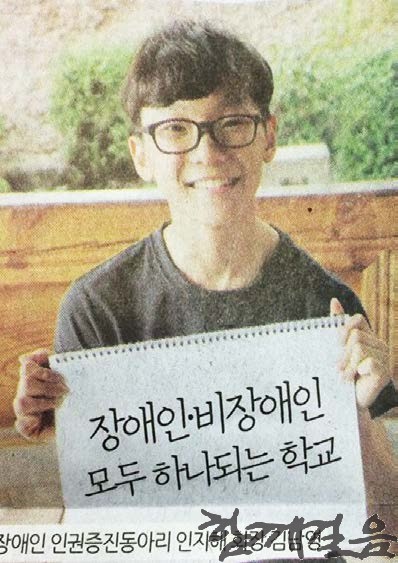 장애인·비장애인
모두 하나되는 학교
장애인 인권증진동아리 인지해 회장 김남영